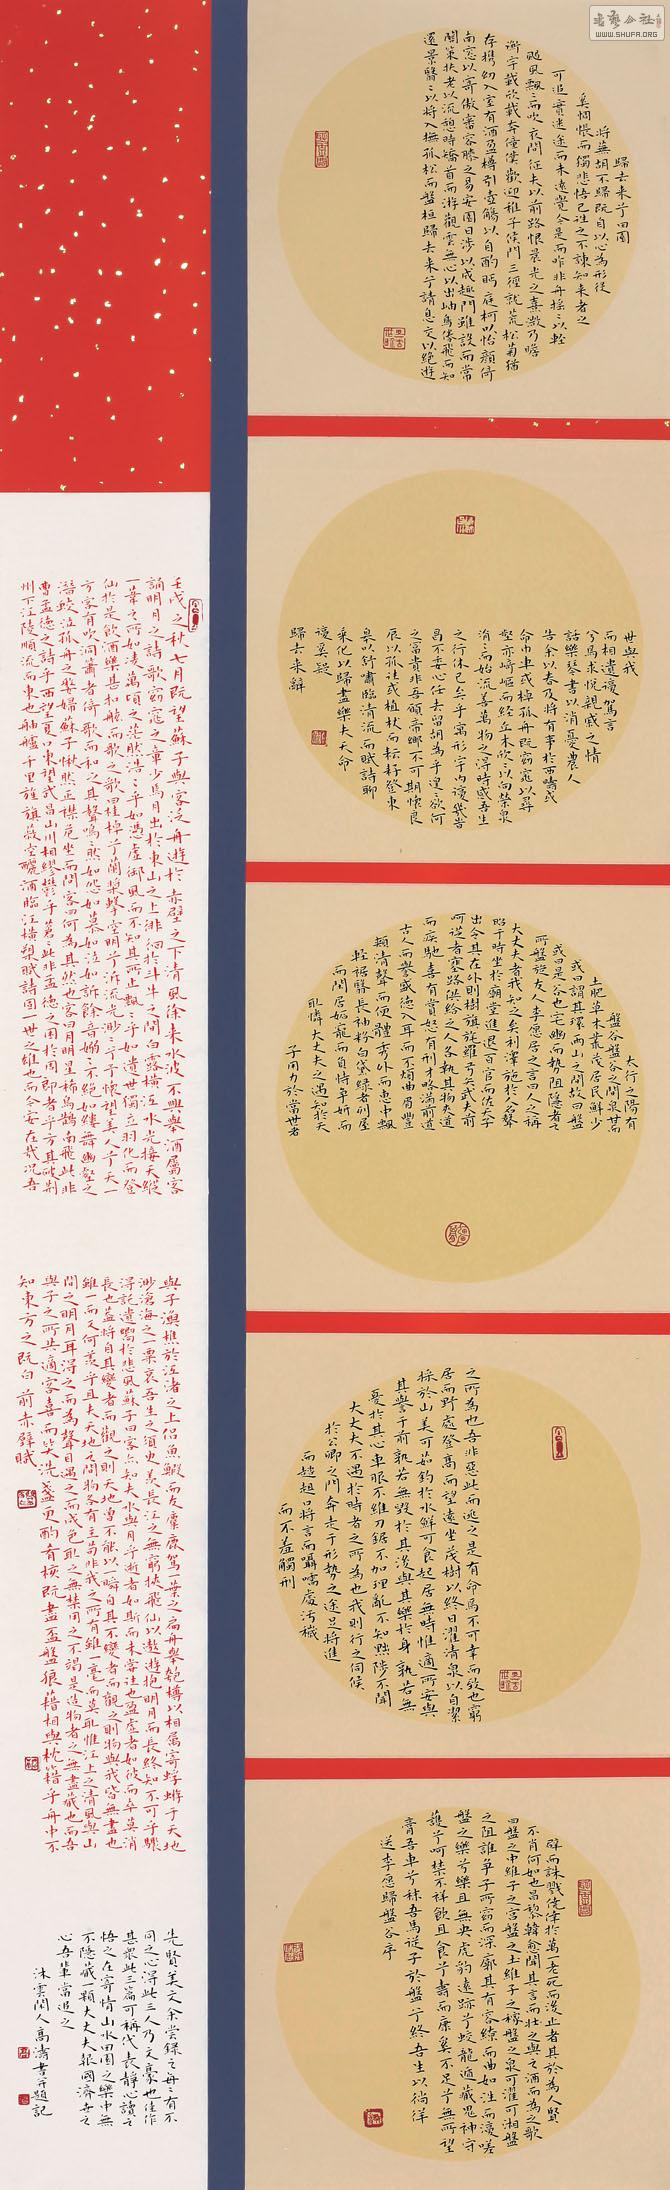 歸去来兮田園
將蕪胡不歸既自以心為形役
奚惆悵而獨悲悟已往之不諫知来者之
可追實迷途而未遠覺今是而昨非舟摇〻以輕
颺風飄〻而吹衣問征夫以前路恨晨光之熹微乃瞻
衡宇载欣载奔僮僕歡迎稚子候門三徑就荒松菊猶
存携幼入室有酒盈樽引壺觴以自酌眄庭柯以怡顏倚
南窓以寄傲審容膝之易安園日涉以成趣門雖設而常
關策扶老以流憩時矯首而游觀雲無心以出岫鳥倦飛而知
還景翳〻以將入撫孤松而盤桓歸去来兮請息交以絶遊
世與我
而相遺復駕言
兮焉求悦親戚之情
話樂琴書以消憂農人
告余以春及將有事於西疇或
命巾車或棹孤舟既窈窕以尋
壑亦崎嶇而經丘木欣〻以向榮泉
涓〻而始流善萬物之得時感吾生
之行休已矣乎寓形宇内復幾時
曷不委心任去留胡為乎遑〻欲何
之富貴非吾願帝鄉不可期懷良
辰以孤往或植杖而耘耔登東
皋以舒嘯臨清流而賦詩聊
乘化以歸盡樂夫天命
復奚疑
歸去来辭
太行之陽有
盤谷盤谷之間泉甘而
土肥草木叢茂居民鮮少
或曰謂其環兩山之間故曰盤
或曰是谷也宅幽而勢阻隱者之
所盤旋友人李愿居之言曰人之稱
大丈夫者我知之矣利澤施於人名聲
昭于時坐於廟堂進退百官而佐天子
出令其在外則樹旗旄羅弓矢武夫前
呵從者塞路供給之人各執其物夾道
而疾馳喜有賞怒有刑才畯滿前道
古今而譽盛德入耳而不煩曲眉豐
頰清聲而便體秀外而惠中飄
輕裾翳長袖粉白黛綠者列屋
而閒居妒寵而負恃爭妍而
取憐大丈夫之遇知於天
子用力於當世者
之所為也吾非惡此而逃之是有命焉不可幸而致也窮
居而野處登高而望遠坐茂樹以終日濯清泉以自潔
採於山美可茹釣於水鮮可食起居無時惟適所安與
其譽于前孰若無毀於其後與其樂於身孰若無
憂於其心車服不維刀鋸不加理亂不知黜陟不聞
大丈夫不遇於時者之所為也我則行之伺候
於公卿之門奔走于形勢之途足將進
而趑趄口將言而囁嚅處污穢
而不羞觸刑
辟而誅戮僥倖於萬一老死而後止者其於為人賢
不肖何如也昌黎韓愈聞其言而壮之與之酒而為之歌
曰盤之中維子之宮盤之土維子之稼盤之泉可濯可湘盤
之阻誰争子所窈而深廓其有容繚而曲如往而復嗟
盤之樂兮樂且無央虎豹遠跡兮蛟龍遁藏鬼神守
護兮呵禁不祥飲且食兮壽而康奚不足兮無所望
膏吾車兮秣吾馬從子於盤兮終吾生以徜徉
送李愿歸盤谷序
壬戌之秋七月既望蘇子與客泛舟遊於赤壁之下清風徐来水波不興舉酒屬客
誦明月之詩歌窈窕之章少焉月出於東山之上徘徊於斗牛之間白露橫江水光接天縱
一葦之所如凌萬頃之茫然浩〻乎如憑虛御風而不知其所止飄〻乎如遺世獨立羽化而登
仙於是飲酒樂甚扣舷而歌之歌曰桂棹兮蘭槳擊空明兮溯流光渺〻兮予懷望美人兮天一
方客有吹洞簫者倚歌而和之其聲嗚〻然如怨如慕如泣如訴餘音嫋〻不絶如縷舞幽壑之
潛蛟泣孤舟之嫠婦蘇子愀然正襟危坐而問客曰何為其然也客曰月明星稀烏鵲南飛此非
曹孟德之詩乎西望夏口東望武昌山川相繆鬱乎蒼〻此非孟德之困於周郎者乎方其破荆
州下江陵順流而東也舳艫千里旌旗蔽空釃酒臨江橫槊賦詩固一世之雄也而今安在哉况吾
與子漁樵於江渚之上侶魚鰕而友麋鹿駕一葉之扁舟舉匏樽以相屬寄蜉蝣于天地
渺滄海之一粟哀吾生之須臾羨長江之無窮挾飛仙以遨遊抱明月而長終知不可乎驟
得託遺響於悲風蘇子曰客亦知夫水與月乎逝者如斯而未嘗往也盈虛者如彼而卒莫消
長也蓋將自其變者而觀之則天地曾不能以一瞬自其不變者而觀之則物與我皆無盡也
而又何羨乎且夫天地之間物各有主苟非我之所有雖一毫而莫取惟江上之清風與山
間之明月耳得之而為聲目遇之而成色取之無禁用之不竭是造物者之無盡藏也而吾
與子之所共適客喜而笑洗盞更酌肴核既盡盃盤狼藉相與枕籍乎舟中不
知東方之既白 前赤壁賦
先賢美文余嘗録之每〻有不
同之心得此三人乃文豪也佳作
甚衆此三篇可稱代表靜心讀之
悟之在寄情山水田園之樂中無
不隱藏一顆大丈夫報國濟世之
心吾輩當追之
沐雲閒人髙濤書并題記
WWW.SHUFA.ORG